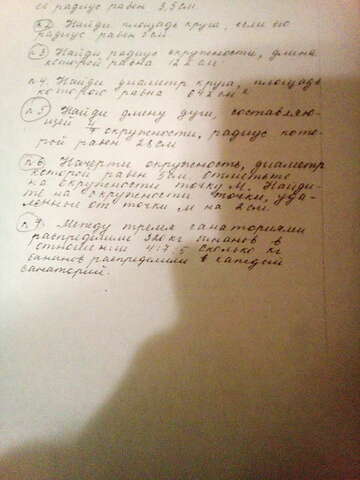 её радиус равен 3,5см.
№2 Найди площадь круга, если его
радиус равен 5 см
№3 Найди радиус окружности, длина
которой равна 12 см
№4. Найди диаметр круга, площадь
которого равна см²
№5 Найди длину дуги, составляю-
щей окружности, радиус кото-
рой равен 28 см
№6. Начерти окружность, диаметр
которой равен 5 см. Отметьте
на окружности точку М. Найди-
те на окружности точки, уда-
ленные от точки М на 2 см.
№7. Между тремя санаториями
распределили 320 кг бананов в
отношении 4:7:5 сколько кг
бананов распределили в каждый
санаторий.